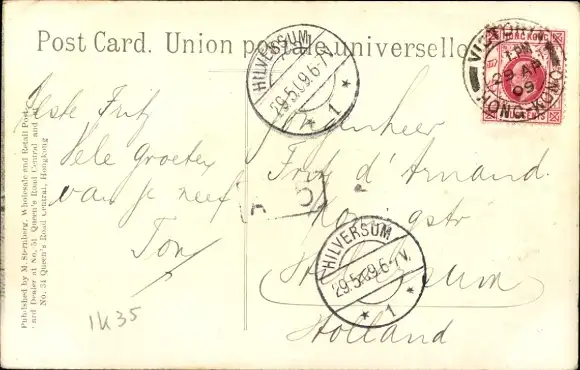 Post Card. Union postale universelle
Published by M. Sternberg, Wholesale and Retail Post
Card Dealer at No. 51 Queen's Road Central and
No. 34 Queen's Road Central, Hongkong
Beste Fritz
Vele Groeten
van je neef
Ton
1K35
HILVERSUM
29.5.09.6-7V.
1
VICTORIA
1 PM
29 AP
09
HONG-KONG
HONG KONG
Mijnheer
Fritz d'Arnaud.
Koningstr
Hilversum
Holland
HILVERSUM
29.5.09.6-7V.
1